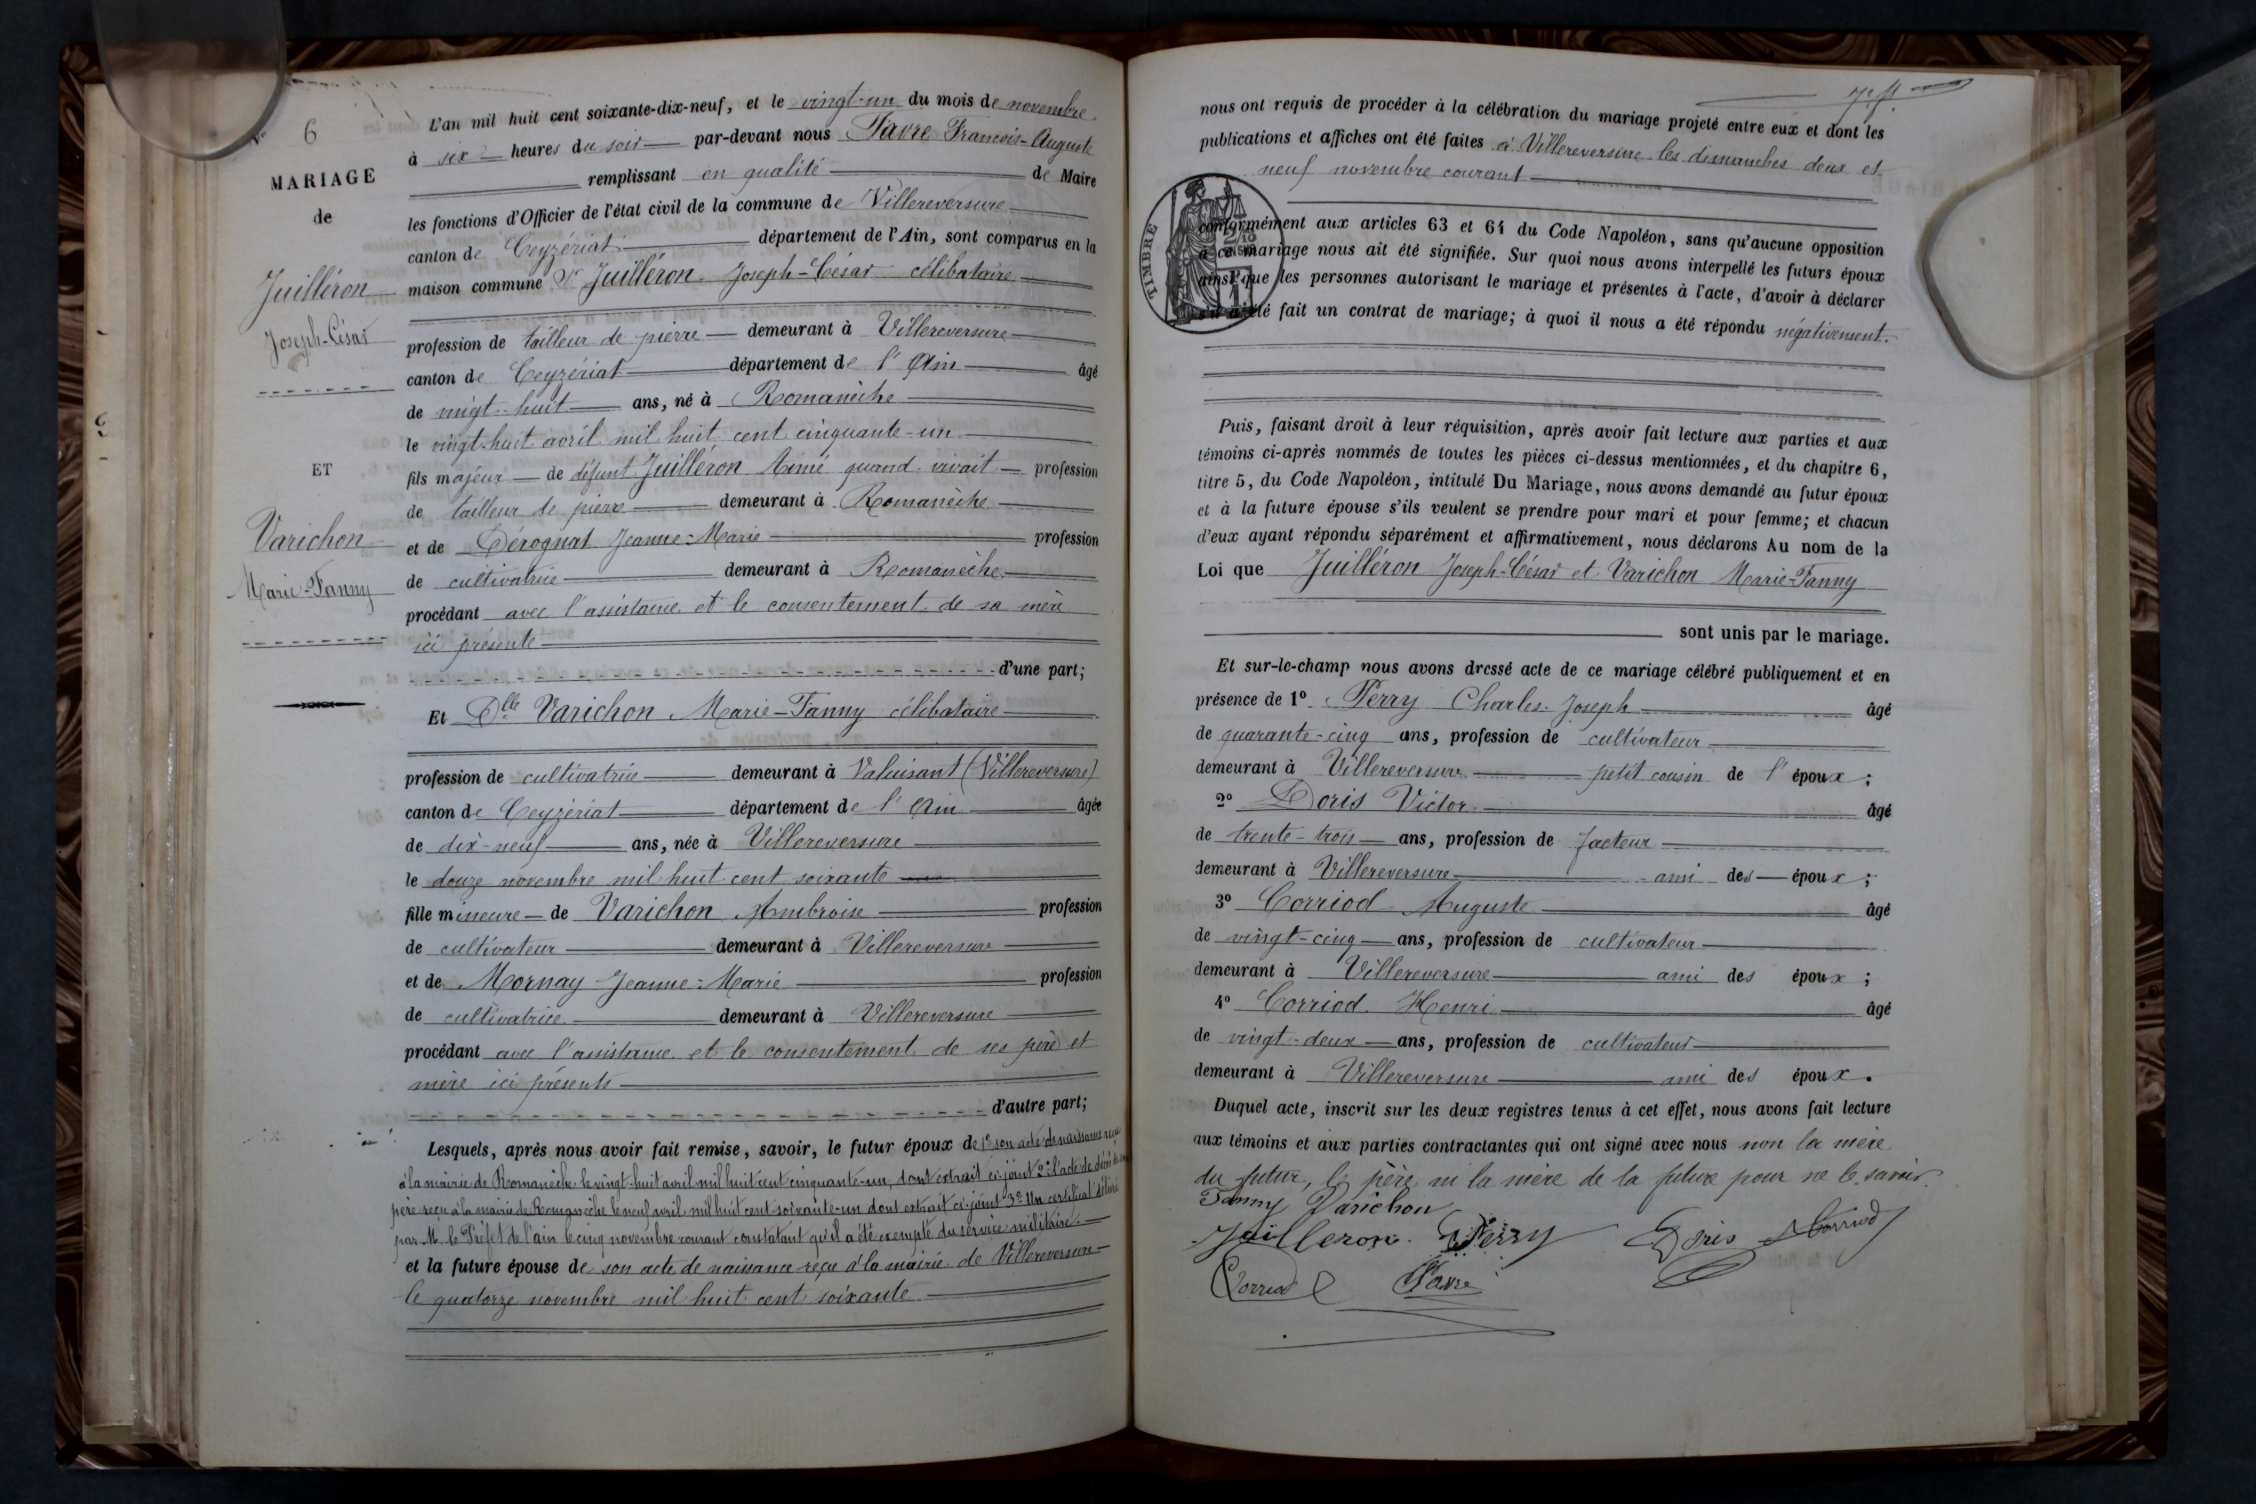 N° 6
MARIAGE
de
Juilléron
Joseph-César
ET
Varichon
Marie-Fanny
L'an mil huit cent soixante-dix-neuf, et le vingt-un du mois de novembre
à six heures du soir par-devant nous Favre François-Auguste
remplissant en qualité de Maire
les fonctions d'Officier de l'état civil de la commune de Villereversure
canton de Ceyzériat département de l'Ain, sont comparus en la
maison commune Sr Juilléron Joseph-César célibataire
profession de tailleur de pierre demeurant à Villereversure
canton de Ceyzériat département de l'Ain âgé
de vingt-huit ans, né à Romanèche
le vingt-huit avril mil huit cent cinquante-un
fils majeur de défunt Juilléron Aimé quand vivait profession
de tailleur de pierre demeurant à Romanèche
et de Dérognat Jeanne-Marie profession
de cultivatrice demeurant à Romanèche
procédant avec l'assistance et le consentement de sa mère
ici présente
d'une part;
Et Dlle Varichon Marie-Fanny célibataire
profession de cultivatrice demeurant à Valuisant (Villereversure)
canton de Ceyzériat département de l'Ain âgée
de dix-neuf ans, née à Villereversure
le douze novembre mil huit cent soixante
fille mineure de Varichon Ambroise profession
de cultivateur demeurant à Villereversure
et de Mornay Jeanne-Marie profession
de cultivatrice demeurant à Villereversure
procédant avec l'assistance et le consentement de ses père et
mère ici présents
d'autre part;
Lesquels, après nous avoir fait remise, savoir, le futur époux de 1° son acte de naissance reçu
à la mairie de Romanèche le vingt-huit avril mil huit cent cinquante-un, dont extrait ci-joint 2° l'acte de décès de son
père reçu à la mairie de Romanèche le neuf avril mil huit cent soixante-un dont extrait ci-joint 3° Un certificat délivré
par M. le Préfet de l'ain le cinq novembre courant constatant qu'il a été exempté du service militaire
et la future épouse de son acte de naissance reçu à la mairie de Villereversure
le quatorze novembre mil huit cent soixante
nous ont requis de procéder à la célébration du mariage projeté entre eux et dont les
publications et affiches ont été faites à Villereversure les dimanches deux et
neuf novembre courant
TIMBRE
conformément aux articles 63 et 64 du Code Napoléon, sans qu'aucune opposition
à ce mariage nous ait été signifiée. Sur quoi nous avons interpellé les futurs époux
ainsi que les personnes autorisant le mariage et présentes à l'acte, d'avoir à déclarer
s'il a été fait un contrat de mariage; à quoi il nous a été répondu négativement.
Puis, faisant droit à leur réquisition, après avoir fait lecture aux parties et aux
témoins ci-après nommés de toutes les pièces ci-dessus mentionnées, et du chapitre 6,
titre 5, du Code Napoléon, intitulé Du Mariage, nous avons demandé au futur époux
et à la future épouse s'ils veulent se prendre pour mari et pour femme; et chacun
d'eux ayant répondu séparément et affirmativement, nous déclarons Au nom de la
Loi que Juilléron Joseph-César et Varichon Marie-Fanny
sont unis par le mariage.
Et sur-le-champ nous avons dressé acte de ce mariage célébré publiquement et en
présence de 1° Perry Charles-Joseph âgé
de quarante-cinq ans, profession de cultivateur
demeurant à Villereversure petit cousin de l'époux;
2° Doris Victor âgé
de trente-trois ans, profession de facteur
demeurant à Villereversure ami des époux;
3° Corriod Auguste âgé
de vingt-cinq ans, profession de cultivateur
demeurant à Villereversure ami des époux;
4° Corriod Henri âgé
de vingt-deux ans, profession de cultivateur
demeurant à Villereversure ami des époux.
Duquel acte, inscrit sur les deux registres tenus à cet effet, nous avons fait lecture
aux témoins et aux parties contractantes qui ont signé avec nous non la mère
du futur, le père ni la mère de la future pour ne le savoir.
Fanny Varichon
Juilleron Perry Doris Corriod
Corriod Favre